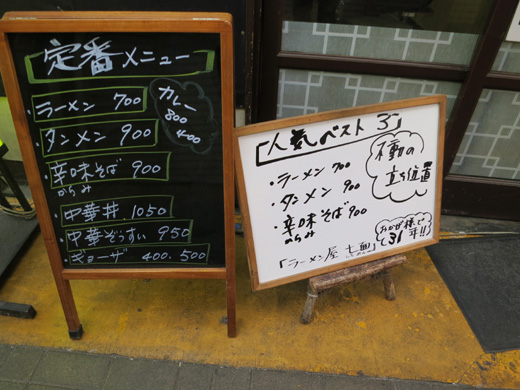 定番メニュー
・ラーメン 700
・タンメン 900
・辛味そば 900
からみ
・中華丼 1050
・中華ぞっすい 950
・ギョーザ 400. 500
カレー
800
400
「人気ベスト3」
・ラーメン 700
・タンメン 900
・辛味そば 900
からみ
不動の
立ち位置
おかげ様で
31年!!